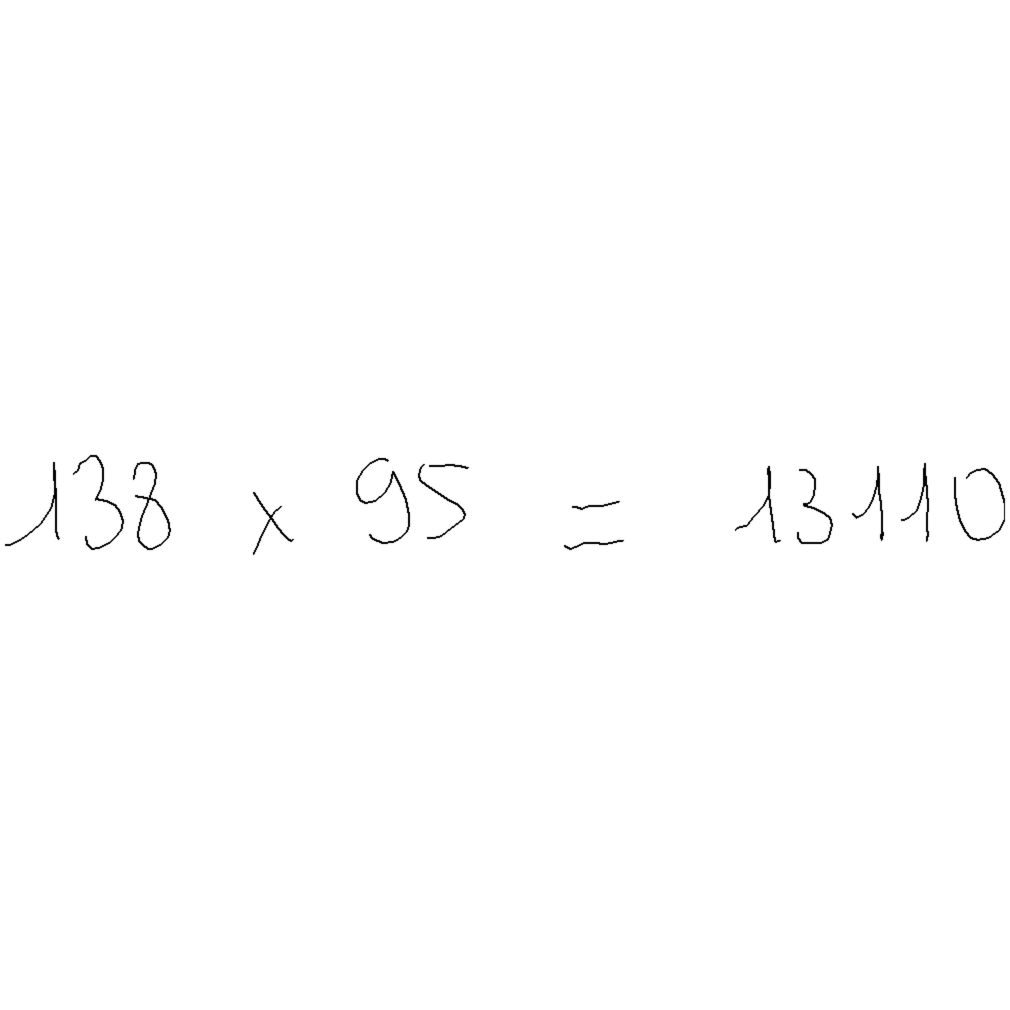 138 x 95 = 13110